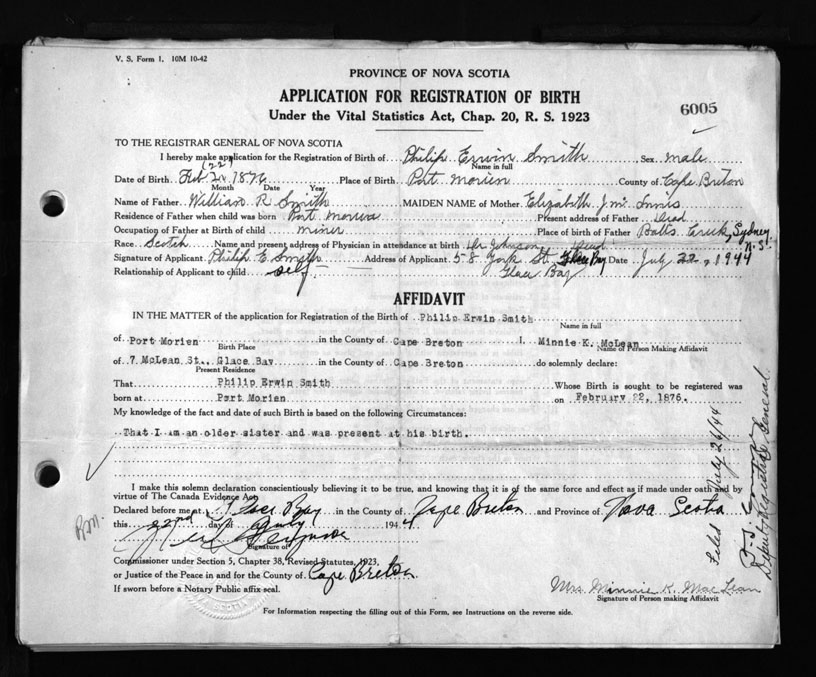 V. S. Form 1. 10M 10-42
PROVINCE OF NOVA SCOTIA
APPLICATION FOR REGISTRATION OF BIRTH
6005
Under the Vital Statistics Act, Chap. 20, R. S. 1923
TO THE REGISTRAR GENERAL OF NOVA SCOTIA
I hereby make application for the Registration of Birth of Philip Erwin Smith Sex male
Name in full
(22)
Date of Birth Feb 24 1876 Place of Birth Port Morien County of Cape Breton
Month Date Year
Name of Father William R Smith MAIDEN NAME of Mother Elizabeth J Mc Innis
Residence of Father when child was born Port Morien Present address of Father Dead
Occupation of Father at Birth of child miner Place of birth of Father Balls Creek, Sydney
Race Scotch Name and present address of Physician in attendance at birth Dr Johnson Dead N.S.
Signature of Applicant Philip E Smith Address of Applicant 58 York St. Glace Bay Date July 22, 1944
Relationship of Applicant to child self Glace Bay
AFFIDAVIT
IN THE MATTER of the application for Registration of the Birth of Philip Erwin Smith
Name in full
of Port Morien in the County of Cape Breton I, Minnie K. McLean
Birth Place Name of Person Making Affidavit
of 7 McLean St., Glace Bay in the County of Cape Breton do solemnly declare:
Present Residence
That Philip Erwin Smith Whose Birth is sought to be registered was
born at Port Morien on February 22, 1876.
My knowledge of the fact and date of such Birth is based on the following Circumstances:
That I am an older sister and was present at his birth.
I make this solemn declaration conscientiously believing it to be true, and knowing that it is of the same force and effect as if made under oath and by
virtue of The Canada Evidence Act.
Declared before me at Glace Bay in the County of Cape Breton and Province of Nova Scotia
this 22nd day of July 1944
Signature of
Commissioner under Section 5, Chapter 38, Revised Statutes, 1923,
or Justice of the Peace in and for the County of Cape Breton
If sworn before a Notary Public affix seal.
Mrs. Minnie K. MacLean
Signature of Person making Affidavit
For Information respecting the filling out of this Form, see Instructions on the reverse side.
Filed July 26/44
Deputy Registrar General